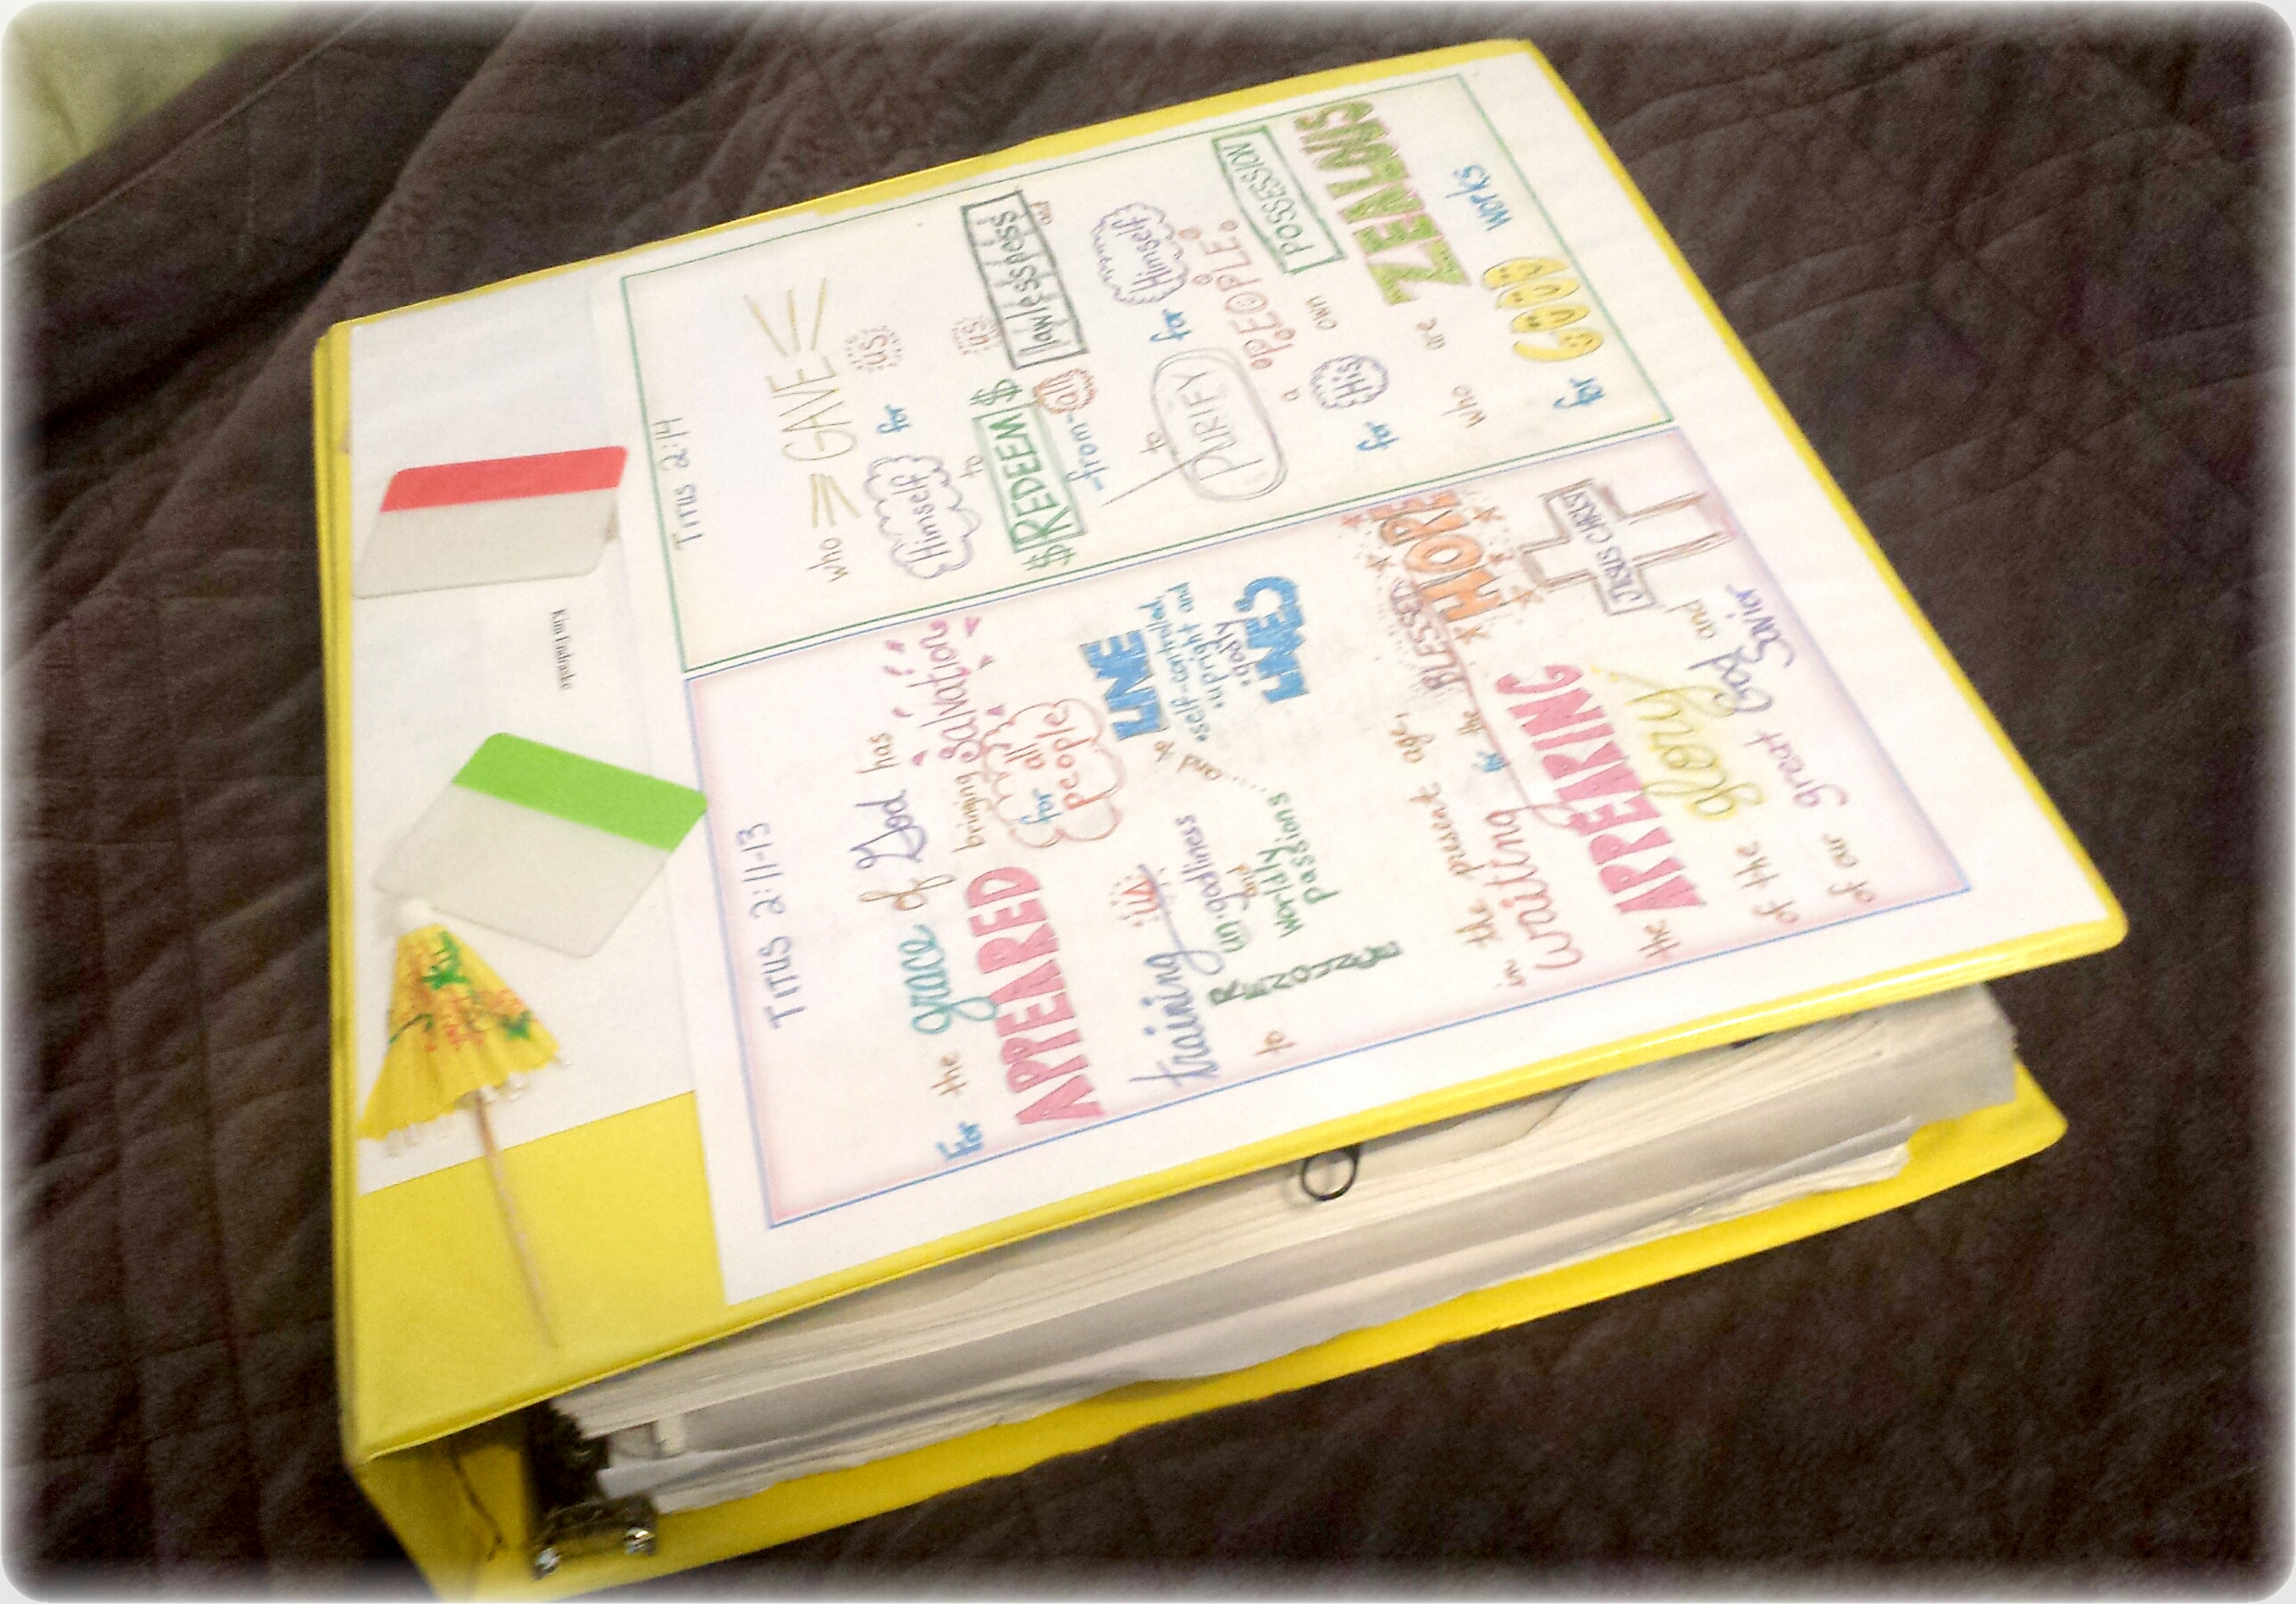 TITUS 2:11-13
For the grace of God has
APPEARED bringing salvation
for all
people
training us
to RENOUNCE
ungodliness
and
worldly
passions
and to LIVE
self-controlled,
upright and
godly
LIVES
in the present age,
waiting for the BLESSED HOPE
the APPEARING
of the glory
of our great God and Savior
JESUS CHRIST
TITUS 2:14
who GAVE
Himself for us
to $REDEEM$ us
-from- all Lawlessness and
to PURIFY for Himself
a PEOPLE
for His own POSSESSION
who are ZEALOUS
for GOOD works